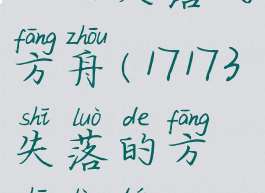 fāng zhōu
方舟(17173
shī luò de fāng
失落的方